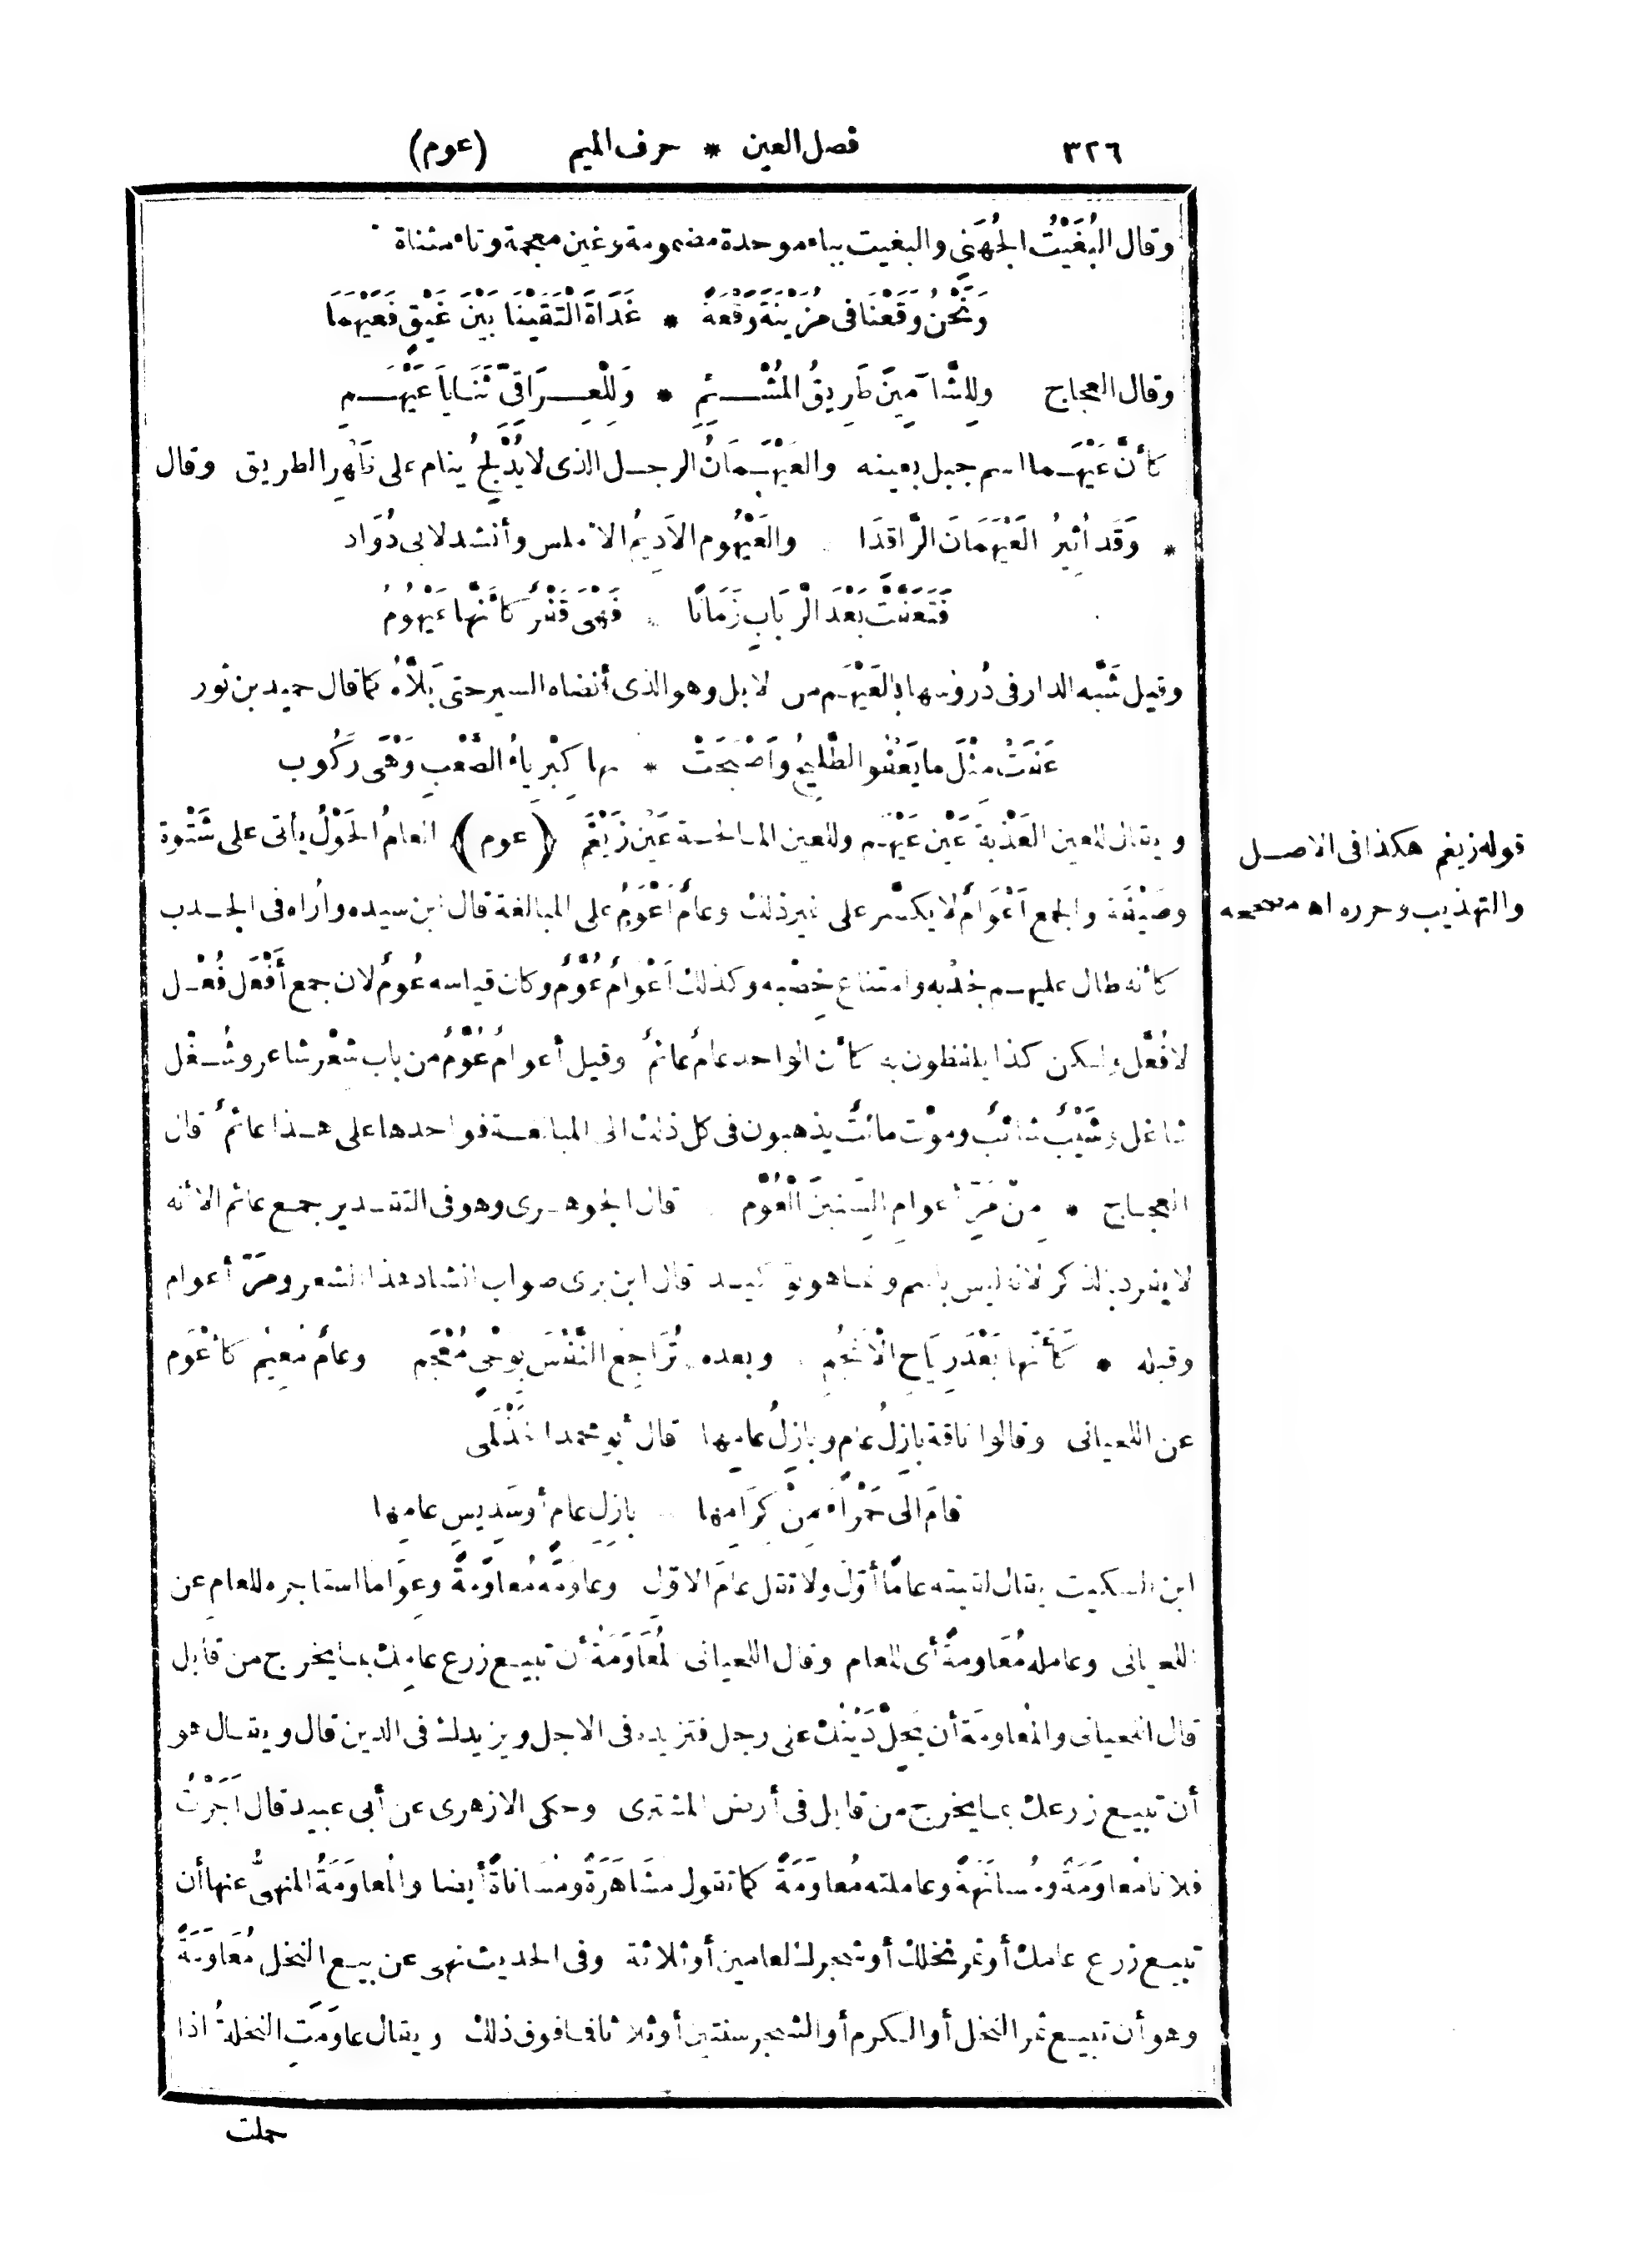 ٣٢٦ فصل العين * حرف الميم (عوم)
وقال البُغَيْتُ الجُهَنى والبغيت بباء موحدة مضمومة وغين معجمة وتاء مثناة
وَنَحْنُ وَقَعْنَا فى مُزَيْنَةَ وَقْعَةً * غَدَاةَ الْتَقَيْنَا بَيْنَ غَيْقٍ فَعَيْهَمَا
وقال العجاج وللِشَّآمِينَ طَرِيقُ المُشْئِمِ * وَلِلْعِرَاقِىِّ ثَنَايَا عَيْهَمِ
كأنَّ عَيْهَما اسم جبل بعينه والعَيْهَمَانُ الرجل الذى لا يُدْلِجُ ينام على ظَهْرِ الطريق وقال
* وَقَد اُثِيرُ العَيْهَمَانَ الرَّاقدَا والعَيْهُوم الاَدِيمُ الأملس وأنشد لابى دُوَاد
فَتَعَفَّتْ بَعْدَ الرَّبَابِ زَمَانًا فَهْىَ قَفْرٌ كأَنَّها عَيْهُومُ
وقيل شَبَّه الدار فى دُروسها بالعَيْهَم من الابل وهو الذى أنضاه السير حتى بَلَّاهُ كما قال حميد بن ثور
عَفَتْ مِثْلَ ما يَعْفُو الطَّلِيحُ وَاَصْبَحَتْ * بها كِبْرِياءُ الصَّعْبِ وَهْىَ رَكُوب
ويقال للعين العَذْبة عَيْن عَيْهَم وللعين المالحة عَيْن زَيْغَم (عوم) العامُ الحَوْلُ يأتى على شَتْوة
وصَيْفَة والجمع اَعْوَامٌ لا يكسَّر على غير ذلك وعامٌ اَعْوَمُ على المبالغة قال ابن سيده واُراه فى الجدب
كأنه طال عليهم جَدْبه وامتناع خِصْبه وكذلك اَعْوَامٌ عُوَّمٌ وكان قياسه عُومٌ لان جمع أَفْعَل فُعْل
لا فُعَّل ولكن كذا يلفظون به كأن الواحد عامٌ عائمٌ وقيل أعوامٌ عُوَّمٌ من باب شعْر شاعر وشُغْل
شاغل وشَيْبٌ شائبٌ وموْت مائتٌ يذهبون فى كل ذلك الى المبالغة فواحدها على هذا عائمٌ قال
العجاج * مِنْ مَرِّ أعوامِ السِّنينَ العُوَّمِ قال الجوهرى وهو فى التقدير جمع عائم الا أنه
لا يفرد بالذكر لانه ليس باسم وانما هو توكيد قال ابن برى صواب انشاد هذا الشعر ومَرِّ أعوام
وقبله * كَأَنَّها بَعْدَ رِيَاحِ الْاَنْجُمِ وبعده تُرَاجِعُ النَّفْسَ بِوَحْىٍ مُعْجَمِ وعامٌ مُعِيمٌ كأَعْوَم
عن اللحيانى وقالوا ناقة بازِلُ عام وبازِلُ عامِها قال أبو محمد الحَذْلَمى
قامَ الى حَمْراءَ مِنْ كِرَامِها بازِلِ عام أو سَدِيسِ عامِها
ابن السكيت يقال لقيته عامًا أوّلَ ولا تقل عامَ الاوّل وعاوَمَهُ مُعاوَمَةً وعِوَامًا استاجره للعامِ عن
اللحيانى وعامله مُعَاومةً أى للعام وقال اللحيانى المُعَاوَمَةُ أن تبيع زرع عامِك بما يخرج من قابل
قال اللحيانى والمُعاومَة أن يَحِلَّ دَيْنُك على رجل فتزيده فى الاجل ويزيدك فى الدين قال ويقال هو
أن تبيع زرعك بما يخرج من قابل فى أرض المشترى وحكى الازهرى عن أبى عبيد قال اَجَرْتُ
فلانا مُعاوَمَةً ومُسانَهَةً وعاملته مُعاوَمَةً كما تقول مشَاهَرَةً ومُسَاناةً أيضا والمُعاوَمَةُ المنهىُّ عنها أن
تبيع زرع عامك أو ثمر نخلك أو شجرك لعامين أو ثلاثة وفى الحديث نهى عن بيع النخل مُعَاوَمَةً
وهو أن تبيع ثمر النخل أو الكرم أو الشجر سنتين أو ثلاثا فما فوق ذلك ويقال عاوَمَتِ النخلةُ اذا
حملت
قوله زيغم هكذا فى الاصل
والتهذيب وحرره اه مصححه